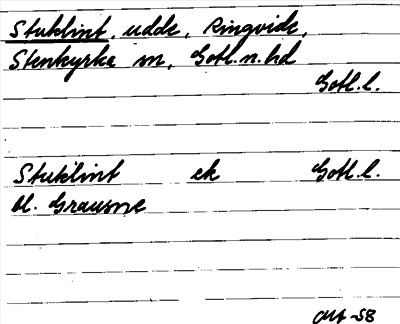 Stuklint, udde, Ringvide,
Stenkyrka sn, Gotl.n.hd
Gotl.l.
Stuklint ek Gotl.l.
bl. Grausne
-58